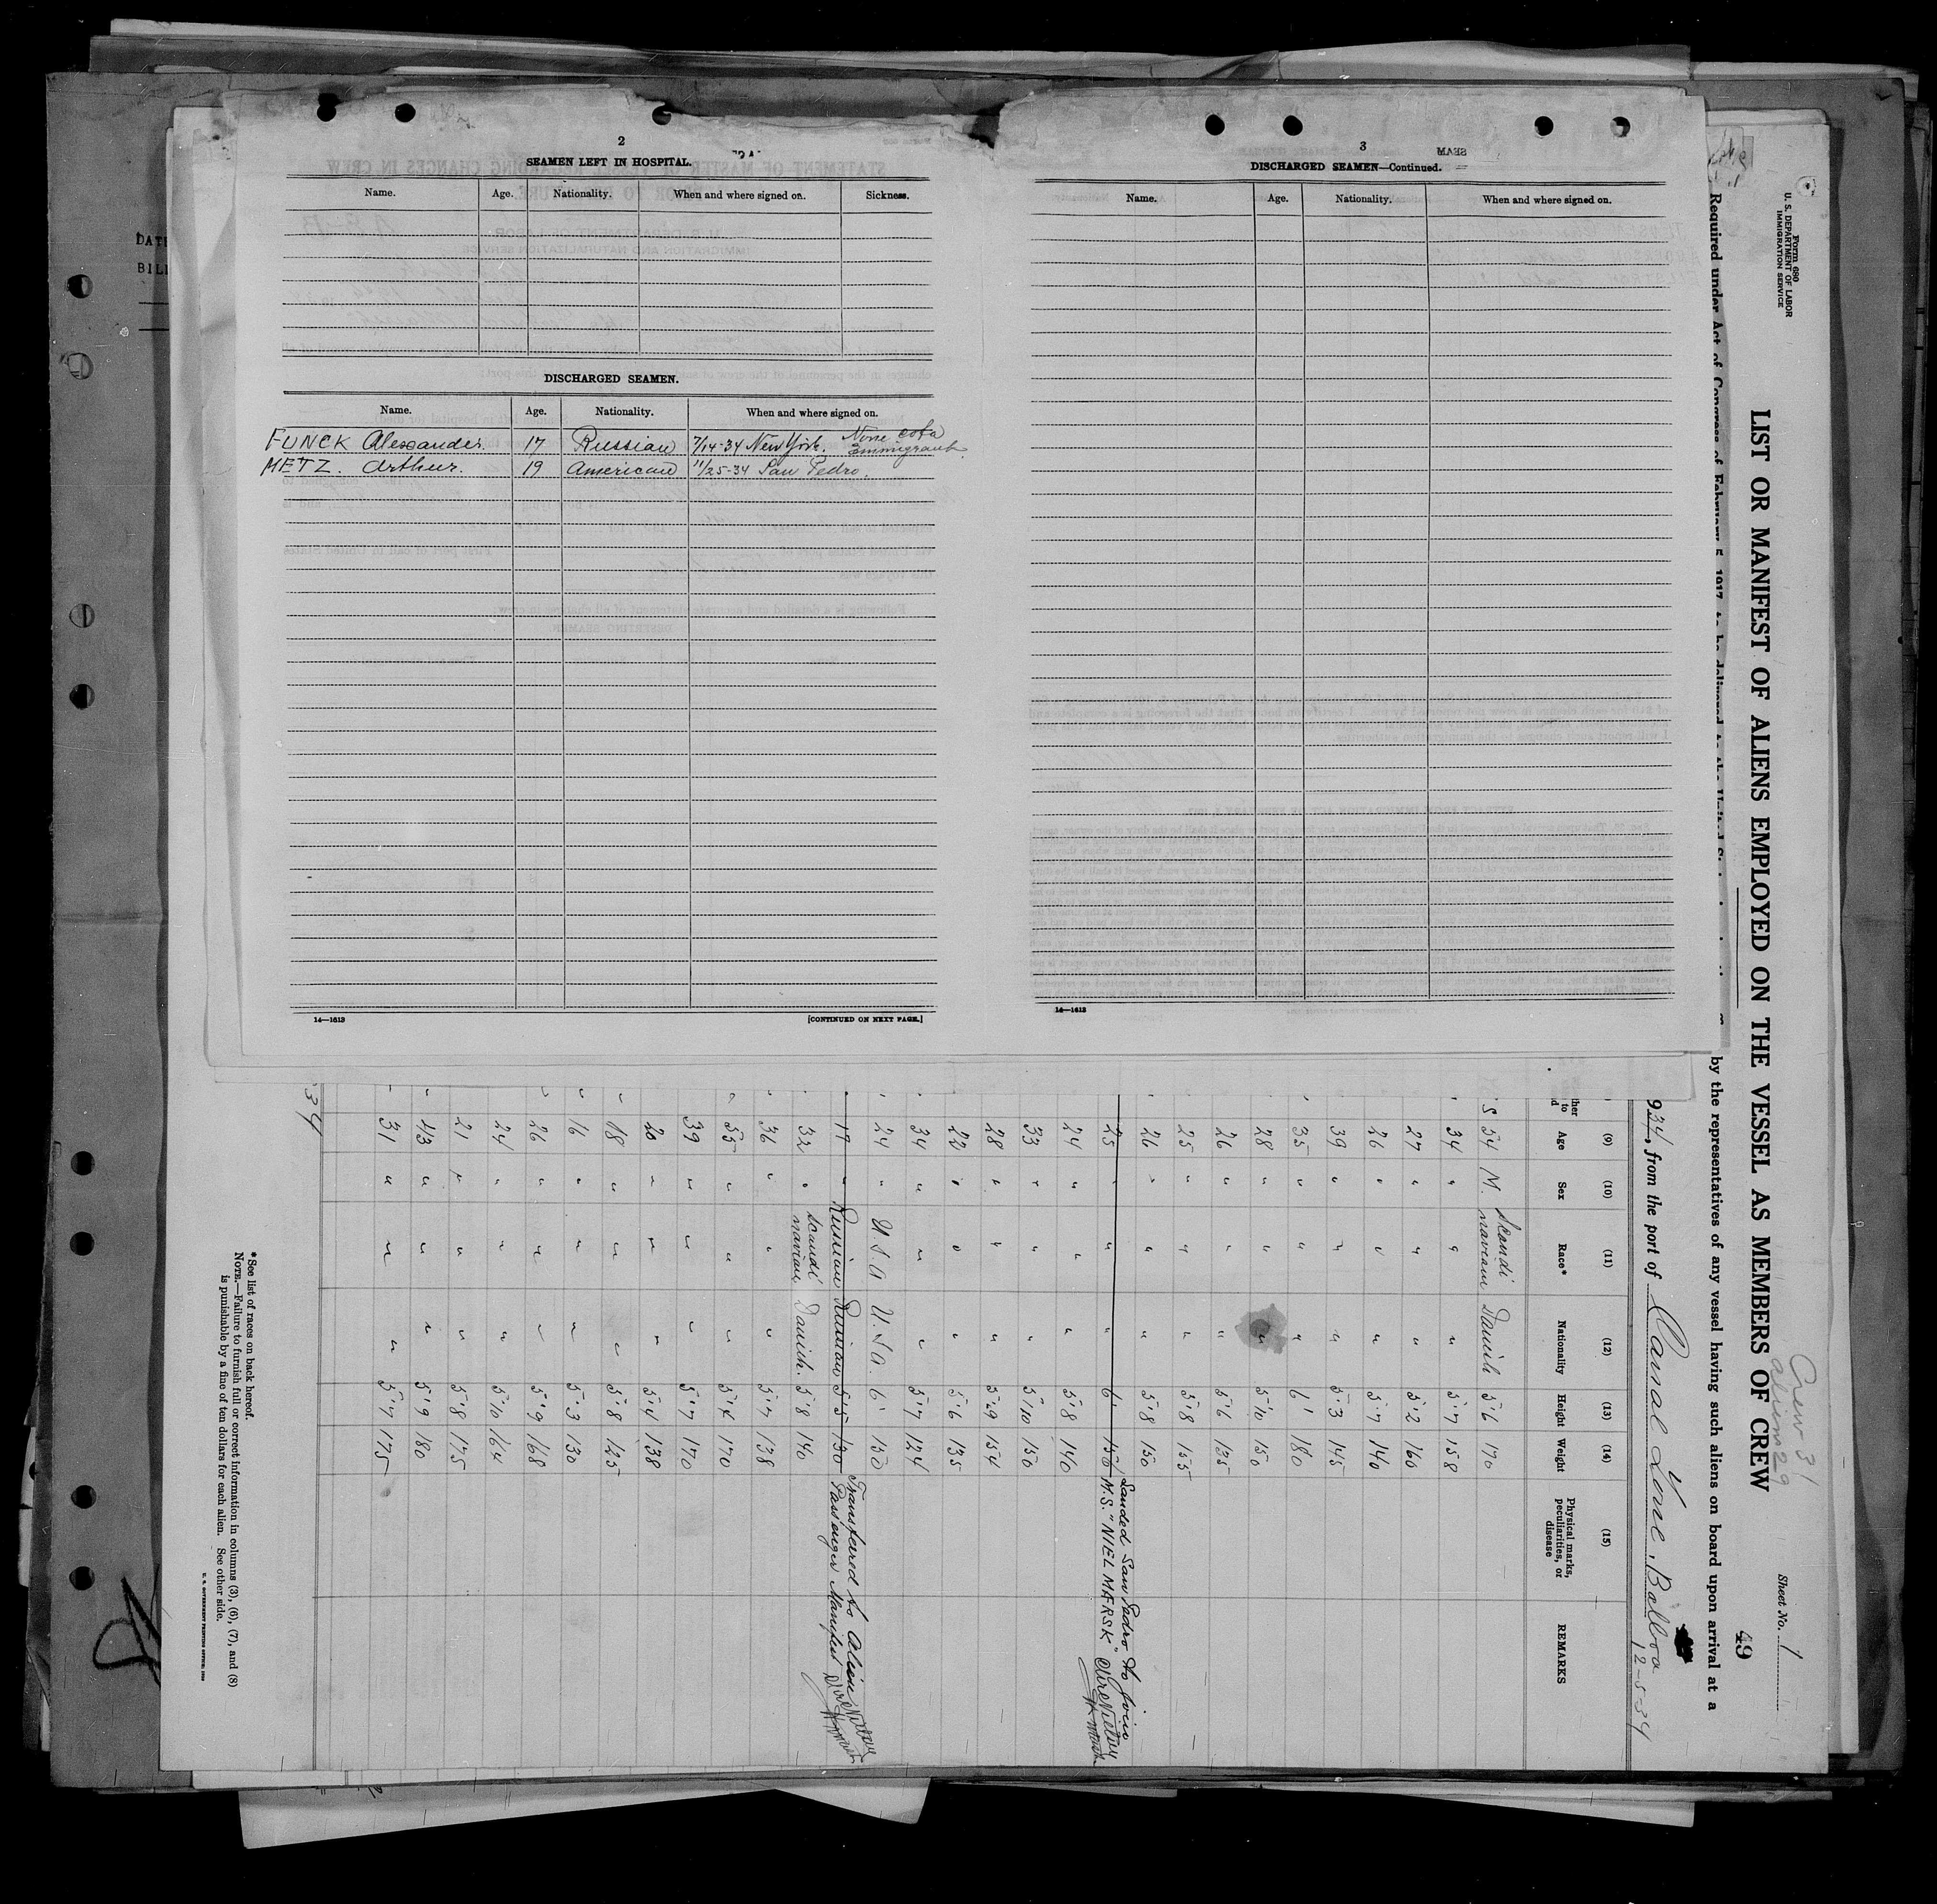 2
SEAMEN LEFT IN HOSPITAL.
Name. Age. Nationality. When and where signed on. Sickness.
DISCHARGED SEAMEN.
Name. Age. Nationality. When and where signed on.
FUNCK Alexander. 17 Russian 7/14-34 New York. None cota Emmigrant.
METZ. Arthur. 19 American 11/25-34 San Pedro.
14—1613 [CONTINUED ON NEXT PAGE.]
3
DISCHARGED SEAMEN—Continued.
Name. Age. Nationality. When and where signed on.
14—1613
DATE
BILL
Form 680
U. S. DEPARTMENT OF LABOR
IMMIGRATION SERVICE
Sheet No. 1
49
Crew 31
aliens 29
LIST OR MANIFEST OF ALIENS EMPLOYED ON THE VESSEL AS MEMBERS OF CREW
Required under Act of Congress of February 5, 1917, to be delivered to the United States by the representatives of any vessel having such aliens on board upon arrival at a
934, from the port of Canal Zone, Balboa
12-5-34
(9) (10) (11) (12) (13) (14) (15)
Age Sex Race* Nationality Height Weight Physical marks, peculiarities, or disease REMARKS
54 M. Scandinavian Danish 5'6 170
34 " " " 5'7 158
27 " " " 5'2 160
26 " " " 5'7 140
39 " " " 5'3 145
35 " " " 6' 180
28 " " " 5'10 150
26 " " " 5'6 135
25 " " " 5'8 155
26 " " " 5'8 150
25 " " " 6' 150 Landed San Pedro to join M.S. "NIEL MÆRSK"
24 " " " 5'8 140
33 " " " 5'10 150
28 " " " 5'9 154
22 " " " 5'6 135
34 " " " 5'7 124
24 " U.S.A U.S.A. 6' 150
17 " Russian Russian 5'5 130 Transfered to Alien Passenger Manifest
32 " Scandinavian Danish. 5'8 140
36 " " " 5'7 138
55 " " " 5'4 170
39 " " " 5'7 170
20 " " " 5'4 138
18 " " " 5'8 125
16 " " " 5'3 130
26 " " " 5'9 168
24 " " " 5'10 164
21 " " " 5'8 175
43 " " " 5'9 180
31 " " " 5'7 175
34
*See list of races on back hereof.
NOTE.—Failure to furnish full or correct information in columns (3), (6), (7), and (8)
is punishable by a fine of ten dollars for each alien. See other side.
U. S. GOVERNMENT PRINTING OFFICE